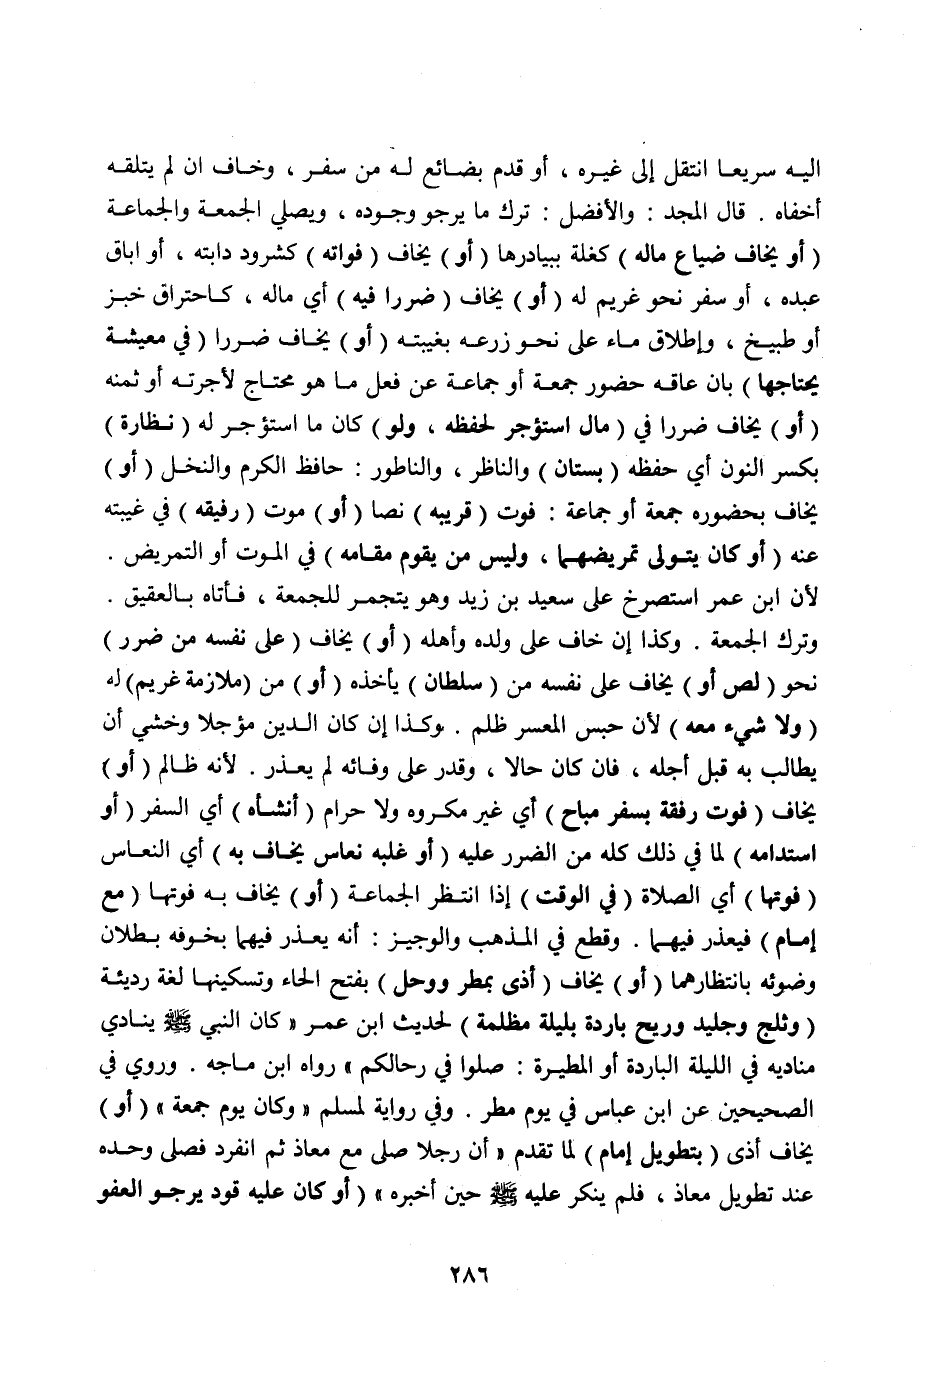 اليه سريعا انتقل إلى غيره ، أو قدم بضائع له من سفر ، وخاف ان لم يتلقه
أخفاه . قال المجد : والأفضل : ترك ما يرجو وجوده ، ويصلي الجمعة والجماعة
( أو يخاف ضياع ماله ) كغلة ببيادرها ( أو ) يخاف ( فواته ) كشرود دابته ، أو اباق
عبده ، أو سفر نحو غريم له ( أو ) يخاف ( ضررا فيه ) أي ماله ، كاحتراق خبز
أو طبيخ ، وإطلاق ماء على نحو زرعه بغيبته ( أو ) يخاف ضررا ( في معيشة
يحتاجها ) بان عاقه حضور جمعة أو جماعة عن فعل ما هو محتاج لأجرته أو ثمنه
( أو ) يخاف ضررا في ( مال استؤجر لحفظه ، ولو ) كان ما استؤجر له ( نظارة )
بكسر النون أي حفظه ( بستان ) والناظر ، والناطور : حافظ الكرم والنخل ( أو )
يخاف بحضوره جمعة أو جماعة : فوت ( قريبه ) نصا ( أو ) موت ( رفيقه ) في غيبته
عنه ( أو كان يتولى تمريضهما ، وليس من يقوم مقامه ) في الموت أو التمريض .
لأن ابن عمر استصرخ على سعيد بن زيد وهو يتجمر للجمعة ، فأتاه بالعقيق .
وترك الجمعة . وكذا إن خاف على ولده وأهله ( أو ) يخاف ( على نفسه من ضرر )
نحو ( لص أو ) يخاف على نفسه من ( سلطان ) يأخذه ( أو ) من (ملازمة غريم) له
( ولا شيء معه ) لأن حبس المعسر ظلم . وكذا إن كان الدين مؤجلا وخشي أن
يطالب به قبل أجله ، فان كان حالا ، وقدر على وفائه لم يعذر . لأنه ظالم ( أو )
يخاف ( فوت رفقة بسفر مباح ) أي غير مكروه ولا حرام ( أنشأه ) أي السفر ( أو
استدامه ) لما في ذلك كله من الضرر عليه ( أو غلبه نعاس يخاف به ) أي النعاس
( فوتها ) أي الصلاة ( في الوقت ) إذا انتظر الجماعة ( أو ) يخاف به فوتها ( مع
إمام ) فيعذر فيهما . وقطع في المذهب والوجيز : أنه يعذر فيهما بخوفه بطلان
وضوئه بانتظارهما ( أو ) يخاف ( أذى بمطر ووحل ) بفتح الحاء وتسكينها لغة رديئة
( وثلج وجليد وريح باردة بليلة مظلمة ) لحديث ابن عمر « كان النبي ﷺ ينادي
مناديه في الليلة الباردة أو المطيرة : صلوا في رحالكم » رواه ابن ماجه . وروي في
الصحيحين عن ابن عباس في يوم مطر . وفي رواية لمسلم « وكان يوم جمعة » ( أو )
يخاف أذى ( بتطويل إمام ) لما تقدم « أن رجلا صلى مع معاذ ثم انفرد فصلى وحده
عند تطويل معاذ ، فلم ينكر عليه ﷺ حين أخبره » ( أو كان عليه قود يرجو العفو
٢٨٦